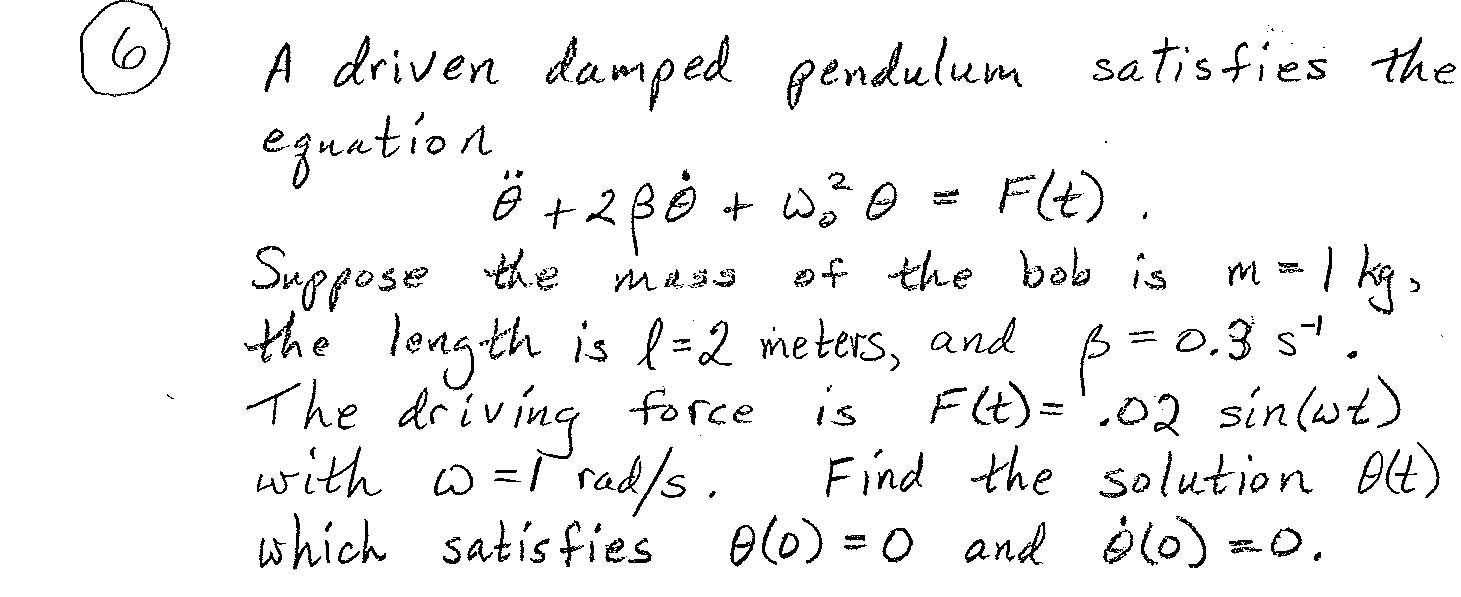 6 A driven damped pendulum satisfies the
equation
θ̈ + 2βθ̇ + ω₀²θ = F(t) .
Suppose the mass of the bob is m = 1 kg,
the length is l = 2 meters, and β = 0.3 s⁻¹.
The driving force is F(t) = .02 sin(ωt)
with ω = 1 rad/s. Find the solution θ(t)
which satisfies θ(0) = 0 and θ̇(0) = 0.